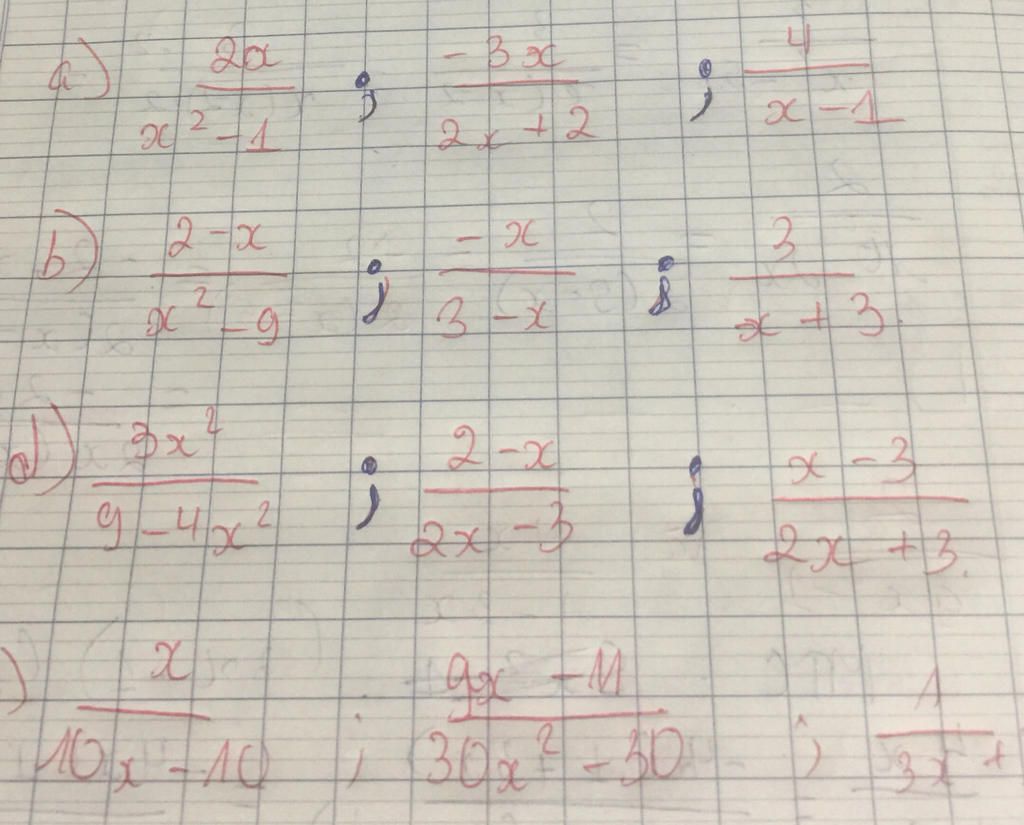 a) 2x / x² - 1 ; - 3x / 2x + 2 ; 4 / x - 1
b) 2 - x / x² - 9 ; - x / 3 - x ; 3 / x + 3
d) 3x² / 9 - 4x² ; 2 - x / 2x - 3 ; x - 3 / 2x + 3
) x / 10x - 10 ; 9x - 11 / 30x² - 30 ; 1 / 3x +